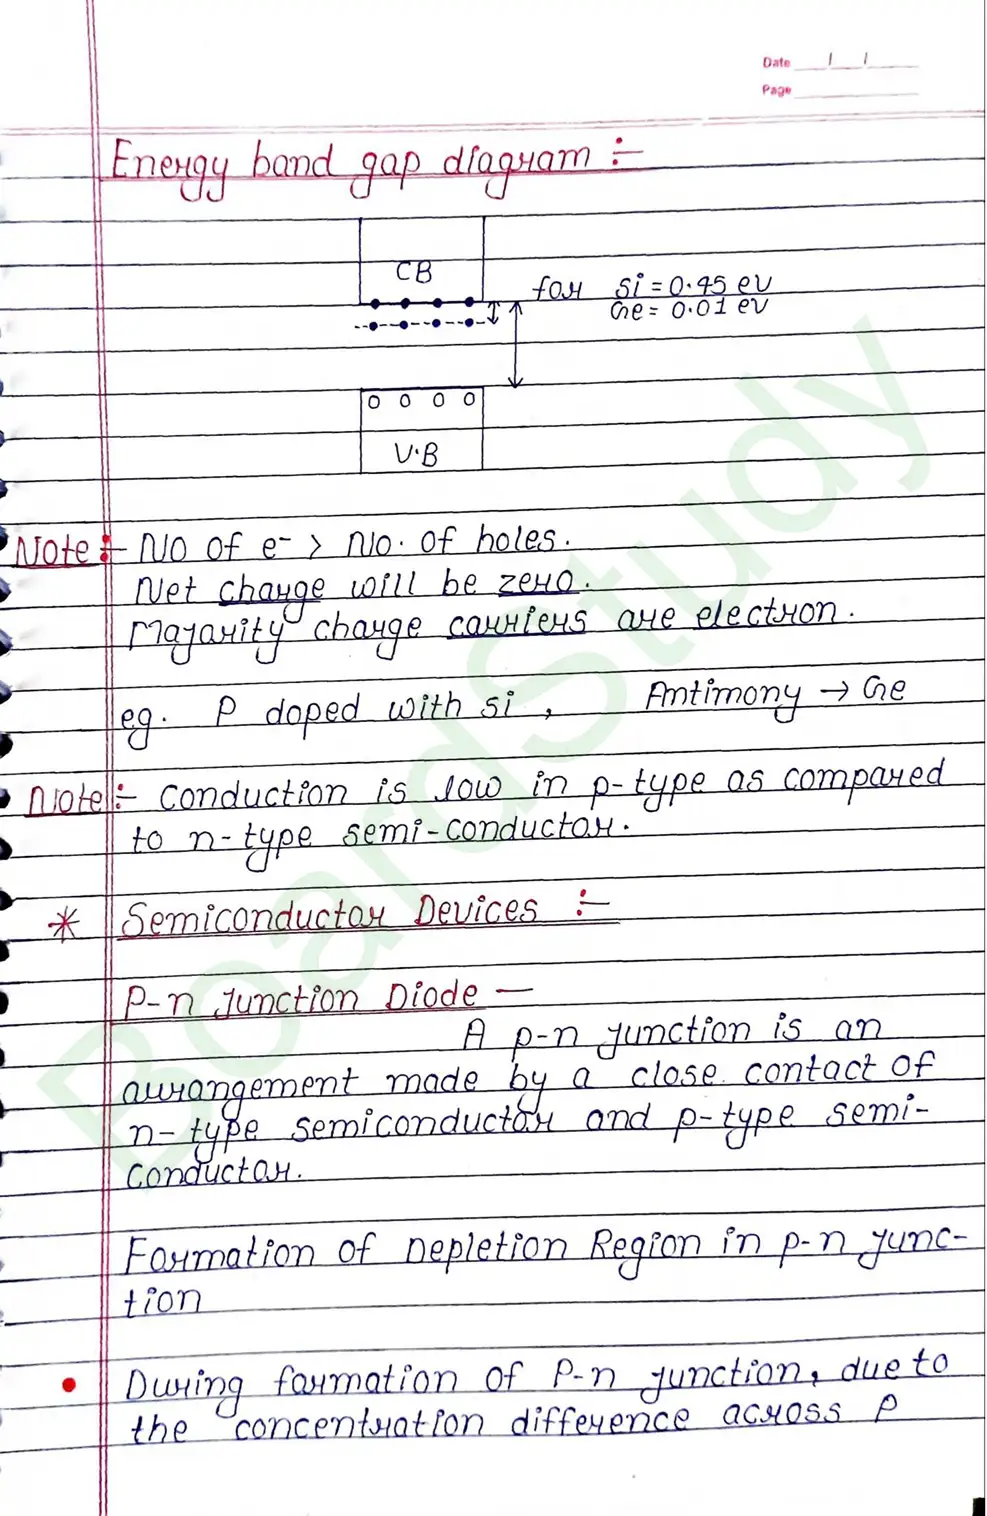 Date / /
Page
Energy band gap diagram :-
CB
for Si = 0.45 eV
Ge = 0.01 eV
V.B
Note :- No of e⁻ > No. of holes.
Net charge will be zero.
Majarity charge carriers are electron.
eg. P doped with si , Antimony → Ge
Note :- Conduction is low in p-type as compared
to n-type semi-conductor.
* Semiconductor Devices :-
P-n Junction Diode —
A p-n junction is an
arrangement made by a close contact of
n-type semiconductor and p-type semi-
conductor.
Formation of Depletion Region in p-n junc-
tion
• During formation of P-n junction, due to
the concentration difference across P
BoardStudy